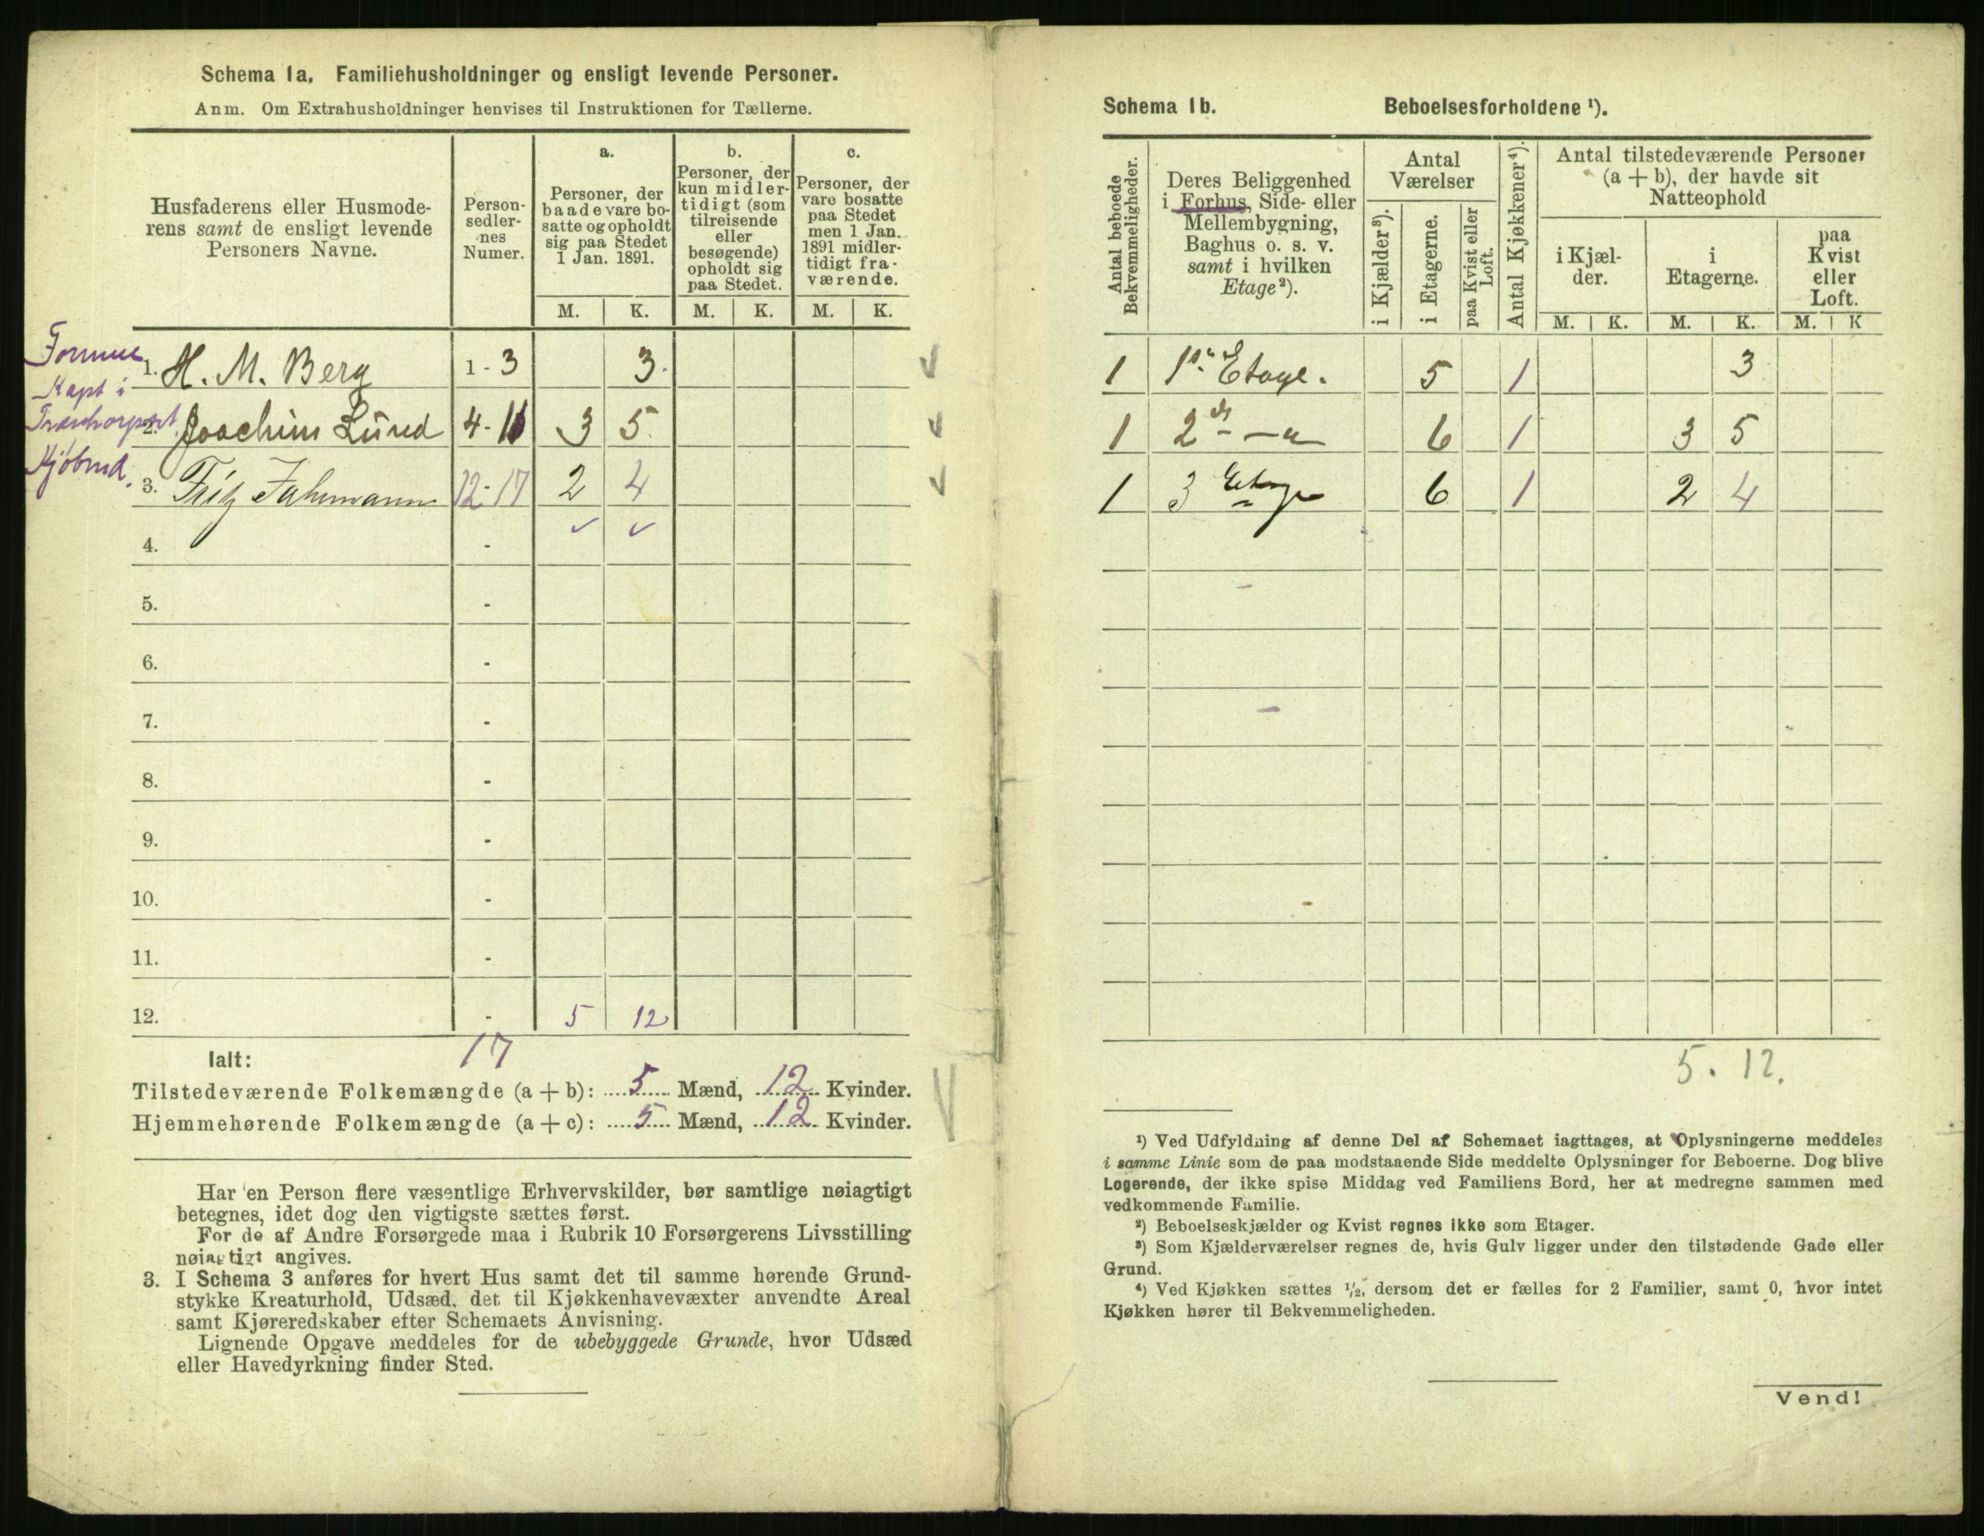 Schema 1a, Familiehusholdninger og ensligt levende Personer.
Anm. Om Extrahusholdninger henvises til Instruktionen for Tællerne.
Husfaderens eller Husmode-
rens samt de ensligt levende
Personers Navne.
Person-
sedler-
nes
Numer.
a.
Personer, der
baade vare bo-
satte og opholdt
sig paa Stedet
1 Jan. 1891.
b.
Personer, der
kun midler-
tidigt (som
tilreisende
eller
besøgende)
opholdt sig
paa Stedet.
c.
Personer, der
vare bosatte
paa Stedet
men 1 Jan.
1891 midler-
tidigt fra-
værende.
M. K. M. K. M. K.
Formue
1. H. M. Berg 1 - 3 3.
Kapt i
2. Joachim Lund 4 - 11 3 5
Kjøbmd.
3. Fritz Jahrmann 12 - 17 2 4
4. -
5. -
6. -
7. -
8. -
9. -
10. -
11. -
12. - 5 12
Ialt: 17
Tilstedeværende Folkemængde (a + b): 5 Mænd, 12 Kvinder.
Hjemmehørende Folkemængde (a + c): 5 Mænd, 12 Kvinder.
Har en Person flere væsentlige Erhvervskilder, bør samtlige nøiagtigt
betegnes, idet dog den vigtigste sættes først.
For de af Andre Forsørgede maa i Rubrik 10 Forsørgerens Livsstilling
nøiagtigt angives.
3. I Schema 3 anføres for hvert Hus samt det til samme hørende Grund-
stykke Kreaturhold, Udsæd, det til Kjøkkenhavevæxter anvendte Areal
samt Kjøreredskaber efter Schemaets Anvisning.
Lignende Opgave meddeles for de ubebyggede Grunde, hvor Udsæd
eller Havedyrkning finder Sted.
Schema 1b. Beboelsesforholdene ¹).
Antal beboede
Bekvemmeligheder.
Deres Beliggenhed
i Forhus, Side- eller
Mellembygning,
Baghus o. s. v.
samt i hvilken
Etage²).
Antal
Værelser
i Kjælder³).
i Etagerne.
paa Kvist eller
Loft.
Antal Kjøkkener⁴).
Antal tilstedeværende Personer
(a + b), der havde sit
Natteophold
i Kjæl-
der.
i
Etagerne.
paa
Kvist
eller
Loft.
M. K. M. K. M. K
1 1ste Etage. 5 1 3
1 2den — " — 6 1 3 5
1 3 Etage 6 1 2 4
5. 12.
¹) Ved Udfyldning af denne Del af Schemaet iagttages, at Oplysningerne meddeles
i samme Linie som de paa modstaaende Side meddelte Oplysninger for Beboerne. Dog blive
Logerende, der ikke spise Middag ved Familiens Bord, her at medregne sammen med
vedkommende Familie.
²) Beboelseskjælder og Kvist regnes ikke som Etager.
³) Som Kjælderværelser regnes de, hvis Gulv ligger under den tilstødende Gade eller
Grund.
⁴) Ved Kjøkken sættes ½, dersom det er fælles for 2 Familier, samt 0, hvor intet
Kjøkken hører til Bekvemmeligheden.
Vend!